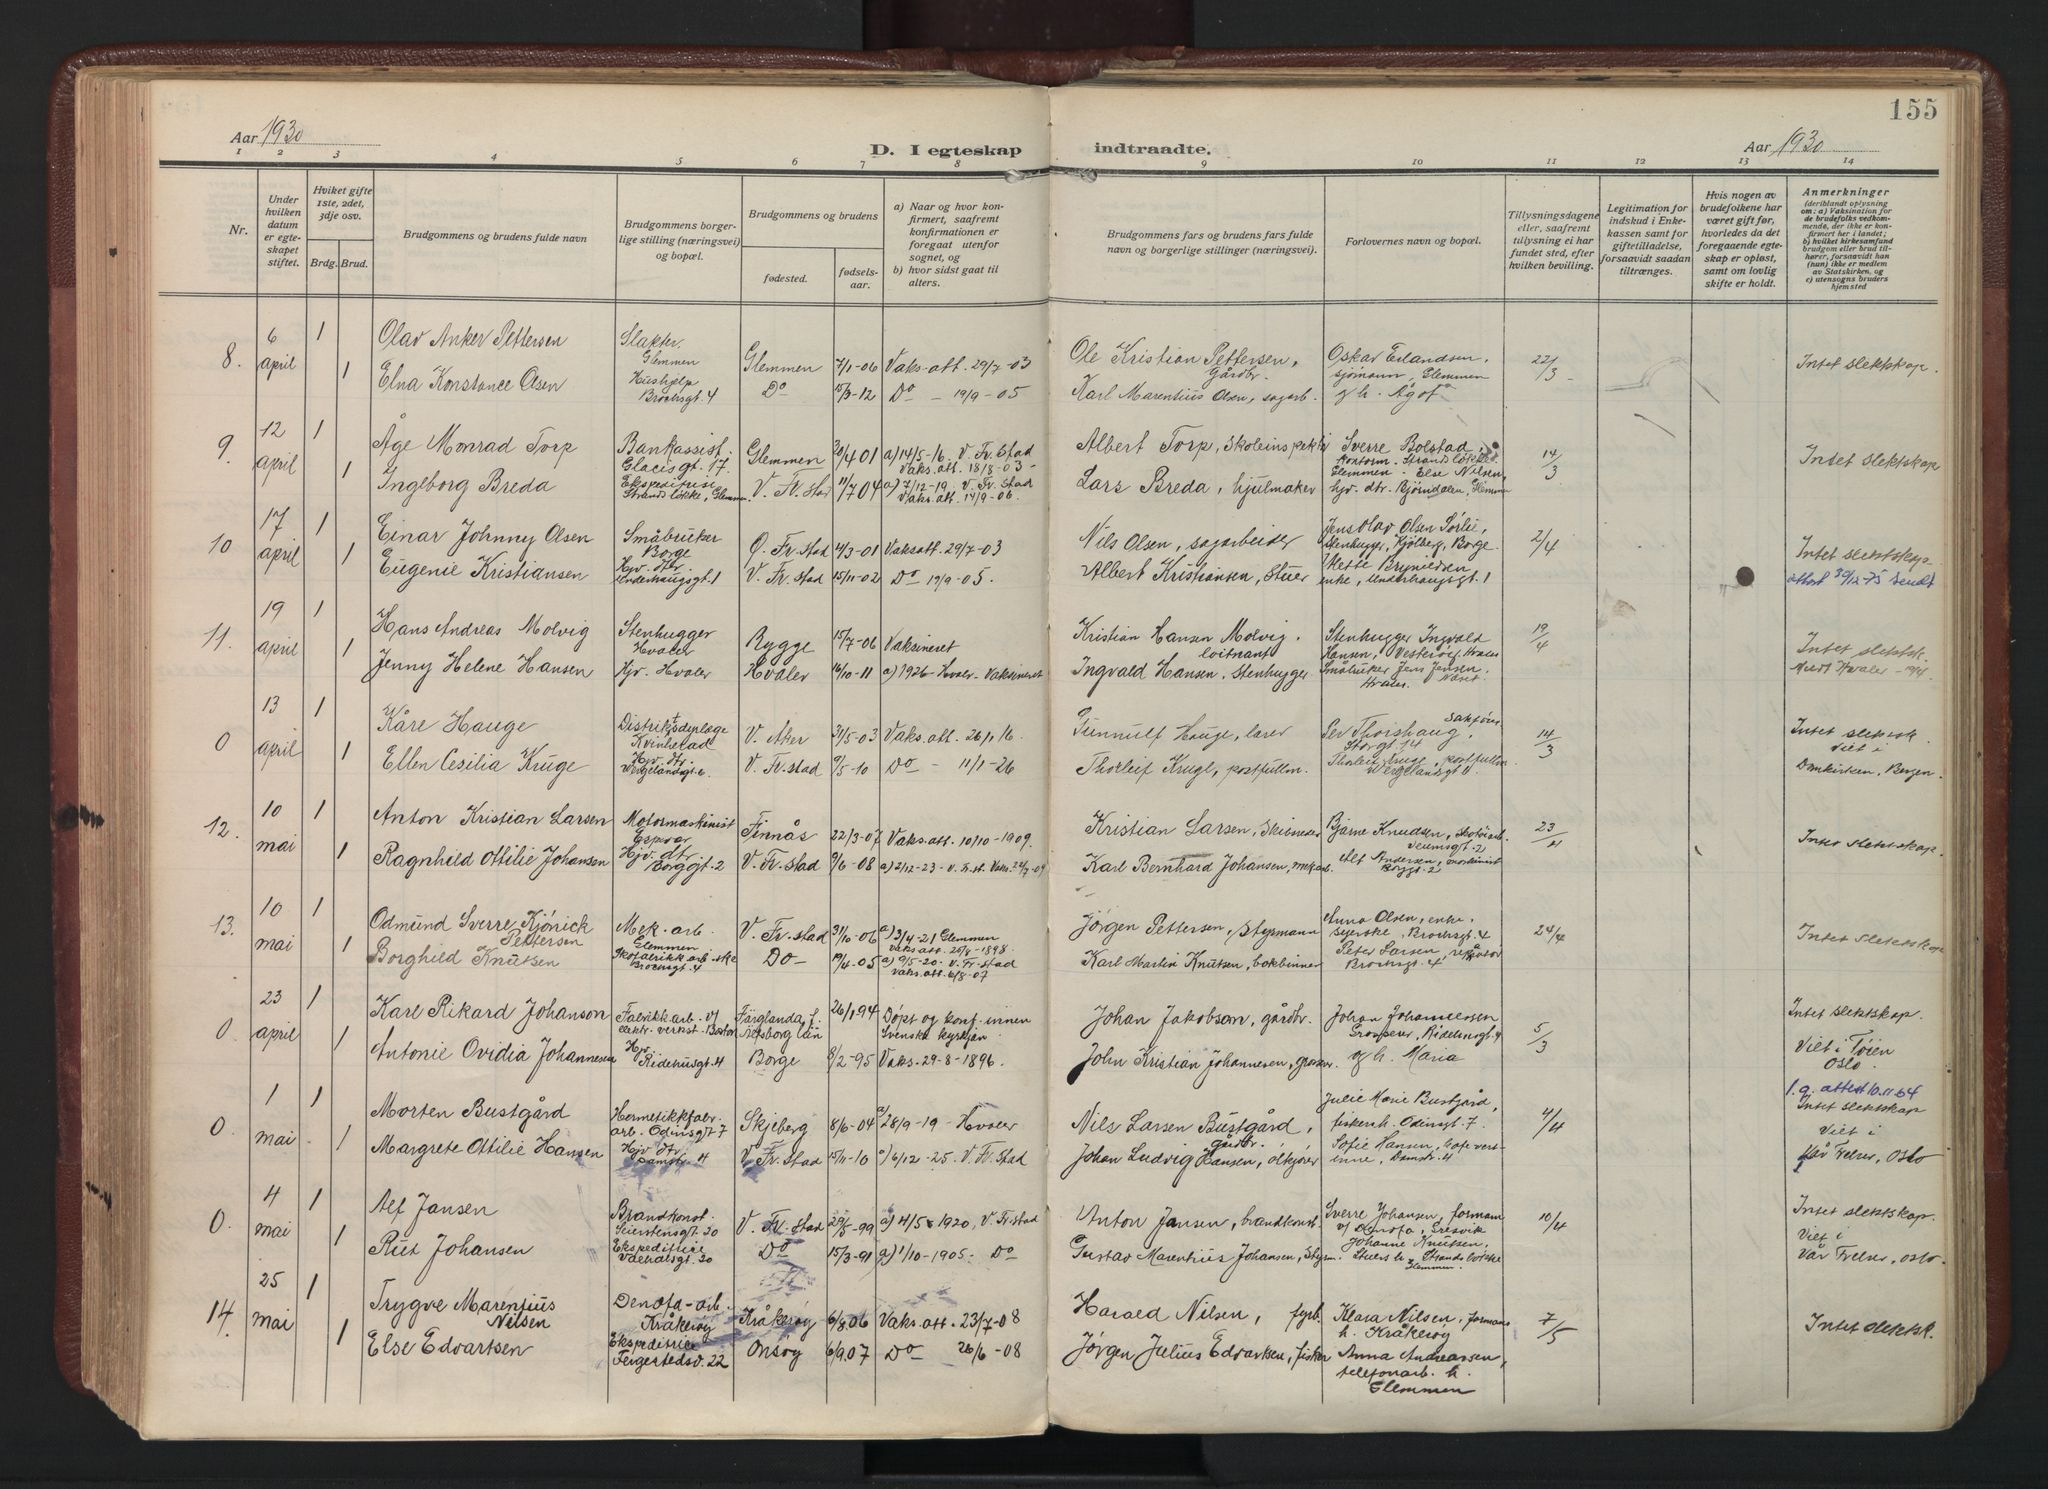 155
Aar 1930
D. I egteskap indtraadte.
Aar 1930
1 2 3 4 5 6 7 8 9 10 11 12 13 14
Nr.
Under hvilken datum er egteskapet stiftet.
Hviket gifte 1ste, 2det, 3dje osv.
Brdg. Brud.
Brudgommens og brudens fulde navn
Brudgommens borgerlige stilling (næringsvei) og bopæl.
Brudgommens og brudens
fødested.
fødselsaar.
a) Naar og hvor konfirmert, saafremt konfirmationen er foregaat utenfor sognet, og
b) hvor sidst gaat til alters.
Brudgommens fars og brudens fars fulde navn og borgerlige stillinger (næringsvei).
Forlovernes navn og bopæl.
Tillysningsdagene eller, saafremt tillysning ei har fundet sted, efter hvilken bevilling.
Legitimation for indskud i Enkekassen samt for giftetilladelse, forsaavidt saadan tiltrænges.
Hvis nogen av brudefolkene har været gift før, hvorledes da det foregaaende egteskap er opløst, samt om lovlig skifte er holdt.
Anmerkninger (deriblandt oplysning om: a) Vaksination for de brudefolks vedkommende, der ikke er konfirmert her i landet; b) hvilket kirkesamfund brudgom eller brud tilhører, forsaavidt han (hun) ikke er medlem av Statskirken, og c) utensogns bruders hjemsted
8. 6 april 1 Olav Anker Pettersen Slakter Glemmen Glemmen 7/1-06 Vaks. att. 29/7-03 Ole Kristian Pettersen, Gårdbr. Oskar Erlandsen, sjömann, Glemmen 22/3 Intet slektskap.
1 Elna Konstance Olsen Hushjelp Brochsgt. 4 Do 15/3-12 Do - 19/9-05 Karl Marentius Olsen, sagarb. g h. Ågot
9. 12 april 1 Åge Monrad Torp Bankassist. Glacisgt. 17. Glemmen 20/4 01 a) 14/5-16. V. Fr.stad Vaks. att. 18/8-03 Albert Torp, Skoleinspektør Sverre Bolstad, kontorm. Strandsløkke, Glemmen 14/3 Intet slektskap
1 Ingeborg Breda Ekspeditrise Strandsløkke, Glemmen V. Fr. stad 11/7 04 a) 7/12-19. V. Fr. stad Vaks. att. 14/9-06. Lars Breda, hjulmaker Else Nilsen, hjv. dtr. Bjørndalen, Glemmen
10 17 april 1 Einar Johnny Olsen Småbruker Borge Ø. Fr. stad 4/3-01 Vaks att. 29/7-03 Nils Olsen, sagarbeider Jens Olav Olsen Sørlie, Stenhugger, Kjølberg, Borge 2/4 Intet slektskap
1 Eugenie Kristiansen Hjv. dtr. Underhaugsgt. 1 V. Fr. stad 15/11-02 Do 19/9-05. Albert Kristiansen, Stuer Mette Brynildsen enke, Underhaugsgt. 1 attest 30/12-75 sendt
11. 19 april 1 Hans Andreas Molvig Stenhugger Hvaler Rygge 15/7-06 Vaksineret Kristian Hansen Molvig, loitnant Stenhugger Ingvald Hansen, Vesterøy, Hvaler 19/4 Intet slektsk.
1 Jenny Helene Hansen Hjv. Hvaler Hvaler 14/10-11 a) 1926 - Hvaler - Vaksineret Ingvald Hansen, Stenhugger Småbruker Jens Jensen Hvaler Viet Hvaler 19/4
0 13 april 1 Kåre Hauge Distriktsdyrlæge Kvinherad V. Aker 31/5-03 Vaks. att. 26/1 16. Gunnulf Hauge, lærer Per Thorshaug, Storgt. 14 14/3 Intet slektsk
1 Ellen Cesilia Kruge Hjv. dtr. Wergelandsgt. 6 V. Fr. stad 9/5-10 Do - 11/1-26 Thorleif Kruge, postfullm. Thorleif Kruge, postfullm. Wergelandsgt. Viet i Domkirken, Bergen.
12. 10 mai 1 Anton Kristian Larsen Motormaskinist Espevær Finnås 22/3-07 Vaks. att. 10/10-1909. Kristian Larsen, Skibsreder Bjarne Knudsen, 23/4 Intet slektskap.
1 Ragnhild Ottilie Johansen Hjv. dtr. Borggt. 2 V. Fr. stad 9/6-08 a) 2/12-23 - V. Fr. st. Vaks. 24/7-09 Karl Bernhard Johansen, mek arb. Alf Andersen, maskinist Borggt. 2
13. 10 mai 1 Odmund Sverre Kjönick Pettersen Mek. arb. Glemmen V. Fr. stad 31/10-06 a) 3/4-21 Glemmen Vaks. att. 25/9-1898 Jörgen Pettersen, Styrmann Anna Olsen, enke, syerske, Brochsgt. 4 24/4 Intet slektskap
1 Borghild Knutsen Skofabrikkarb.ske Brochsgt. 4 Do 19/4-05 a) 9/5-20. V. Fr. stad Vaks. att. 6/8-07 Karl Martin Knutsen, bokbinner Peter Larsen, Brochsgt. 4
0. 23 april 1 Karl Rikard Johanson Fabrikkarb. v/ elektr. verkst. Färglanda f. Älvsborg län 26/1 94 Döpt og konf. innen Svenska kyrkjan Johan Jakobson, gårdbr. Johan Johannessen Grosserer, Ridehusgt. 4 5/3 Intet slektskap.
1 Antonie Ovidia Johannesen Hjv Ridehusgt. 4 Borge 8/2-95 Vaks. 29-8-1896. John Kristian Johannesen, grosser. g h. Maria Viet i Tøien Oslo.
0. 1 mai 1 Morten Bustgård Hermetikkfabr. arb. Odinsgt. 7 Skjeberg 8/6-04 a) 28/9-19 - Hvaler Nils Larsen Bustgård, gårdbr. Julie Marie Bustgård, fisker h. Odinsgt. 7. 4/4 l. g. attest 10.11.64 Intet slektskap
1 Margrete Ottilie Hansen Hjv dtr. Damstr. 4 V. Fr. stad 15/11-10 a) 6/12-25. V. Fr. stad Johan Ludvig Hansen, ølkjører Sofie Hansen, kafevertinne, Damstr. 4 Viet i Vår Frelser, Oslo
0. 4 mai 1 Alf Jansen Brandkonst. Seierstensgt. 20 V. Fr. stad 29/5-99 a) 4/5 1920, V. Fr. stad Anton Jansen, brandkonst. Sverre Johansen, formann v/ Denofa, Gresvik 10/4 Intet slektskap.
1 Rut Johansen Ekspeditrice Valhalsgt. 20 Do 15/3-91 a) 1/10-1905. Do Gustav Marentius Johansen, Styrm. Johanne Knutsen, Stuers h. Strandsløkke Glemmen. Viet i Vår Frelser, Oslo.
14. 25 mai 1 Trygve Marentius Nilsen Denofa-arb. Kråkerøy Kråkerøy 6/8 06 Vaks. att. 23/7-08 Harald Nilsen, fyrb. Klara Nilsen, formans h. Kråkerøy 7/5 Intet slektsk.
1 Else Edvartsen Ekspeditrice Fergestedsv. 22 Onsøy 6/9 07 Do 26/6-08 Jørgen Julius Edvartsen, fisker Anna Andreassen, telefonarb. h. Glemmen